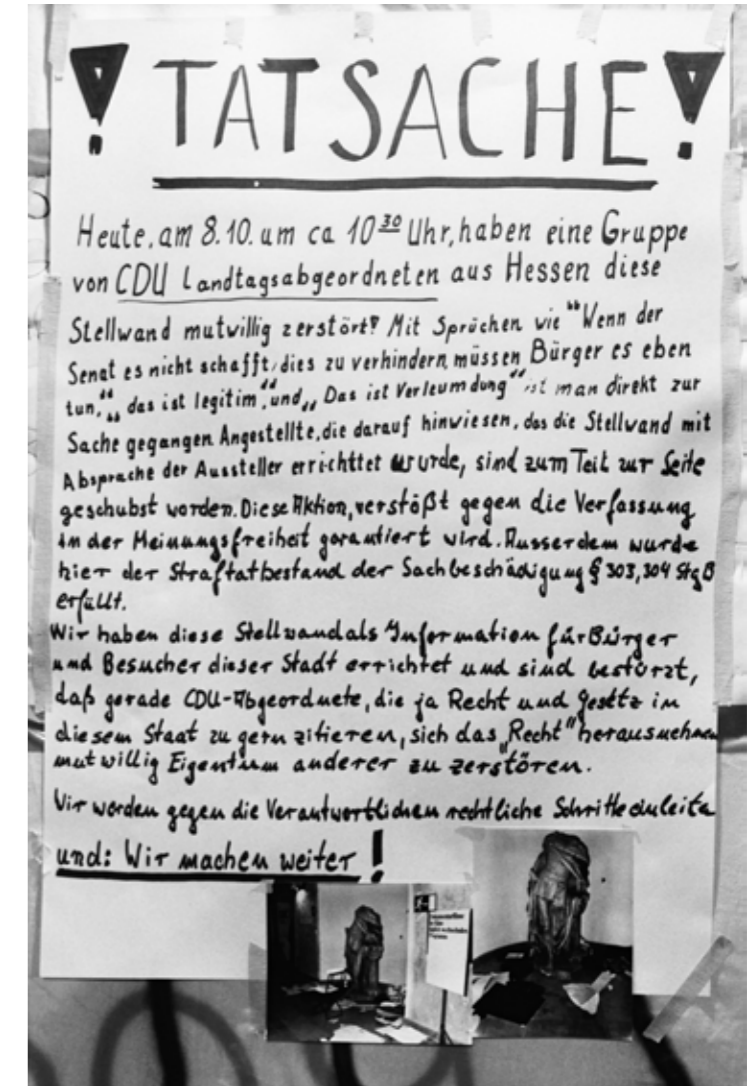 ! TATSACHE !
Heute, am 8.10. um ca 10³⁰ Uhr, haben eine Gruppe
von CDU Landtagsabgeordneten aus Hessen diese
Stellwand mutwillig zerstört! Mit Sprüchen wie "Wenn der
Senat es nicht schafft, dies zu verhindern, müssen Bürger es eben
tun," „das ist legitim" und „Das ist Verleumdung" ist man direkt zur
Sache gegangen Angestellte, die darauf hinwiesen, das die Stellwand mit
Absprache der Aussteller errichttet wurde, sind zum Teil zur Seite
geschubst worden. Diese Aktion, verstößt gegen die Verfassung
in der Meinungsfreiheit garantiert wird. Ausserdem wurde
hier der Straftatbestand der Sachbeschädigung § 303, 304 StgB
erfüllt.
Wir haben diese Stellwand als Information für Bürger
und Besucher dieser Stadt errichtet und sind bestürzt,
daß gerade CDU-Abgeordnete, die ja Recht und Gesetz in
diesem Staat zu gern zitieren, sich das „Recht" herausnehmen
mutwillig Eigentum anderer zu zerstören.
Wir werden gegen die Verantwortlichen rechtliche Schritte einleite
und: Wir machen weiter !